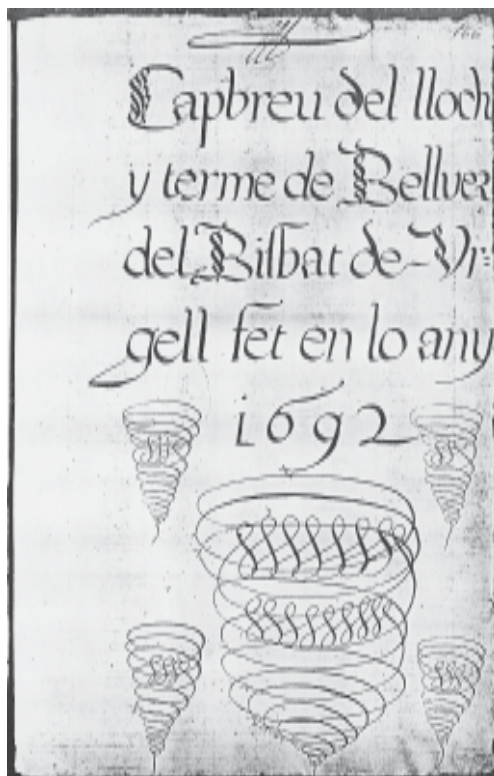 Capbreu del lloch
y terme de Bellver
del Bisbat de Vr=
gell fet en lo any
1692